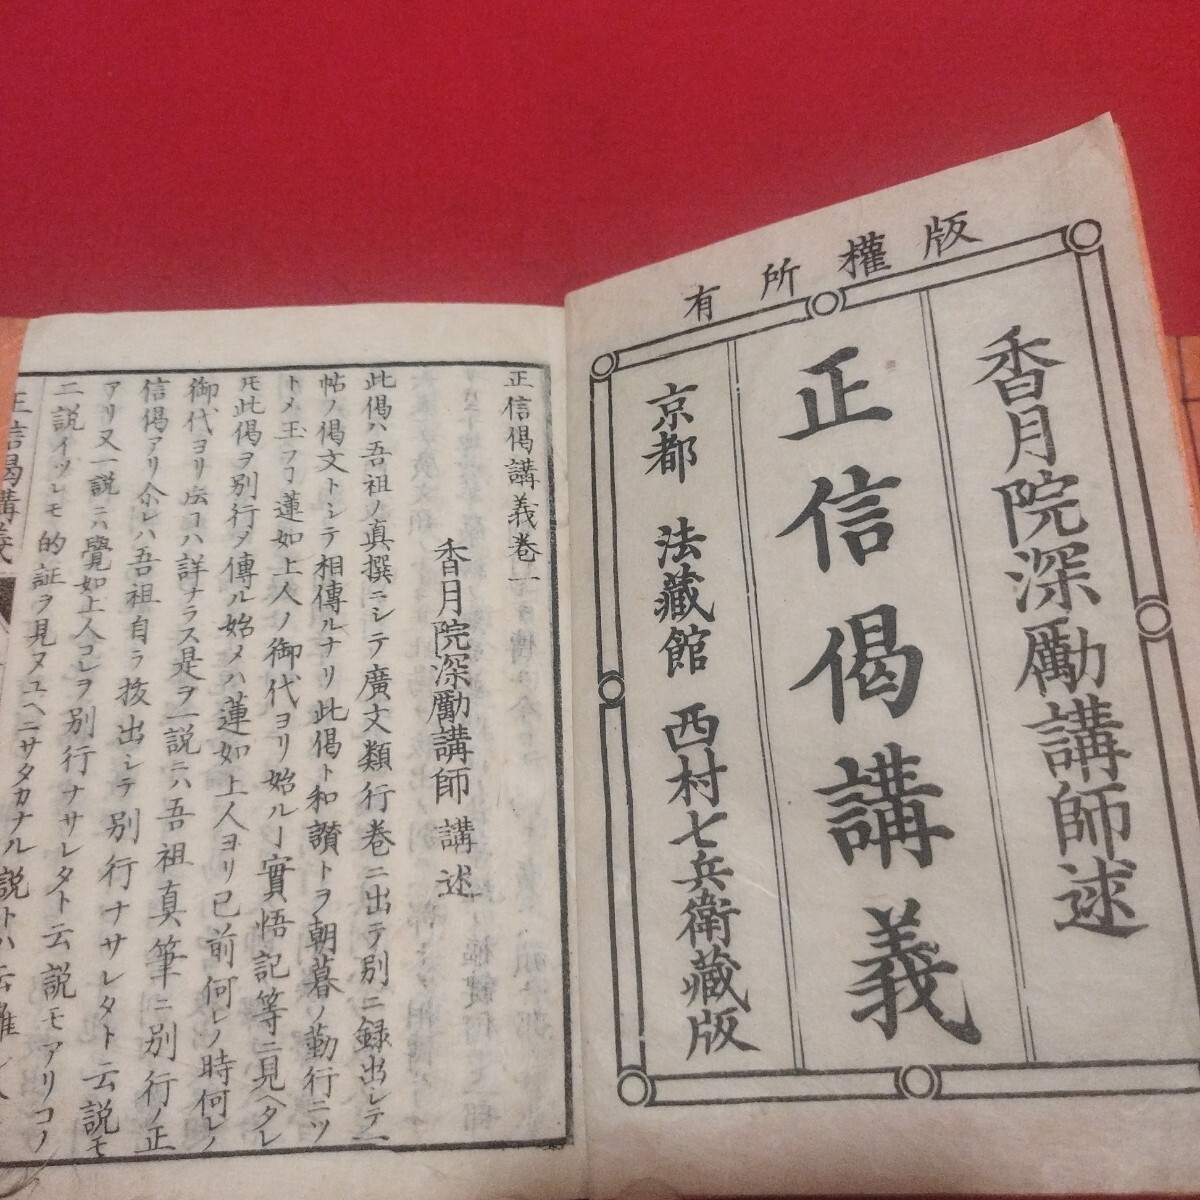 版權所有
香月院深勵講師述
正信偈講義
京都 法藏館 西村七兵衛藏版
正信偈講義巻一
香月院深勵講師 講述
此偈ハ吾祖ノ真撰ニシテ廣文類行巻ニ出テ別ニ録出シテ一
帖ノ偈文トシテ相傳ルナリ此偈ト和讃トヲ朝暮ノ勤行ニツ
トメ玉フヿ蓮如上人ノ御代ヨリ始ルヿ實悟記等ニ見ヘタレ
𪜈此偈ヲ別行メ傳ル始メハ蓮如上人ヨリ已前何レノ時何レノ
御代ヨリ云コハ詳ナラス是ヲ一説ニハ吾祖真筆ニ別行ノ正
信偈アリ介レハ吾祖自ラ抜出シテ別行ナサレタト云説モ
アリ又一説ニハ覺如上人コレヲ別行ナサレタト云説モアリコノ
二説イツレモ的証ヲ見ヌユヘニサタカナル説トハ云難シ
正信偈講義